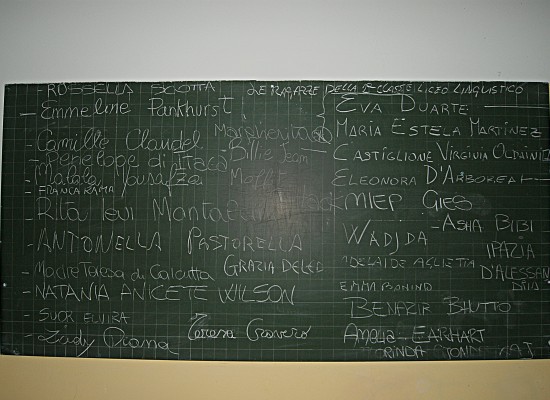 - ROSSELLA SCOTTA
LE RAGAZZE DELLA 1ª CLASSE LICEO LINGUISTICO
- Emmeline Pankhurst
- Camille Claudel
Margherita
- Penelope di Itaca
Billie Jean
- Malala Yousafzai
Moffit
- FRANCA RAMA
- Rita Levi Montalcini Hack
- ANTONELLA PASTORELLA
- Madre Teresa di Calcutta
GRAZIA DELED
- NATANIA ANICETE WILSON
- SUOR ELVIRA
- Lady Diana
Teresa
EVA DUARTE
MARIA ESTELA MARTINEZ
CASTIGLIONE VIRGINIA OLDAINI
ELEONORA D'ARBOREA
MIEP GIES
- ASHA BIBI
WADJDA
IPAZIA
D'ALESSAN
DRIA
ADELAIDE AGLIETTA
EMMA BONINO
BENAZIR BHUTTO
AMELIA EARHART